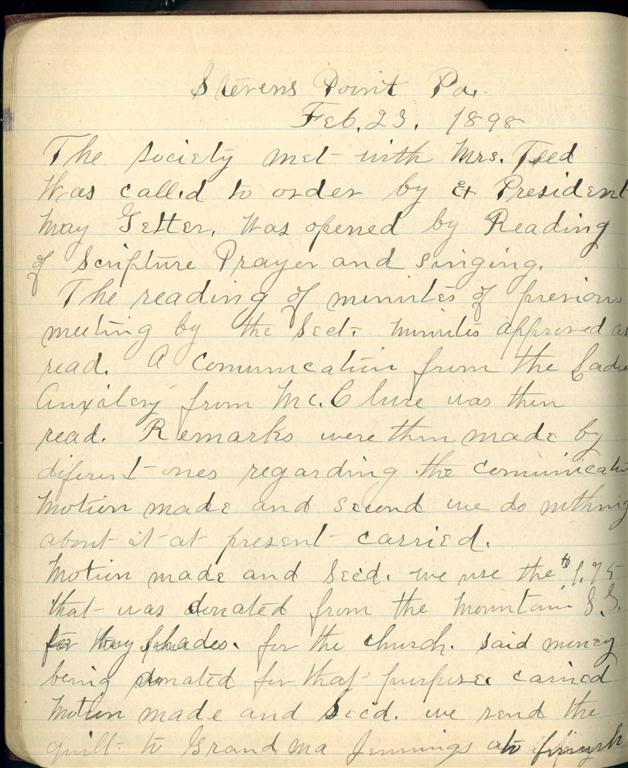 Stevens Point Pa.
Feb. 23. 1898
The society met with Mrs. Teed
Was called to order by Ex President
May Getter. Was opened by Reading
of Scripture Prayer and singing.
The reading of minutes of previous
meeting by the Sect. minutes approved as
read. A Comunication from the Ladies
Auxilery from Mc.Clure was then
read. Remarks were then made by
diferent ones regarding the comunicatio
Motion made and second we do nothing
about it at present carried.
Motion made and Secd. we use the $1.75
that was donated from the Mountain S.S.
buy shades. for the church. said money
being donated for that purpose carried
Motion made and Secd. we send the
quilt to Grandma Jennings to